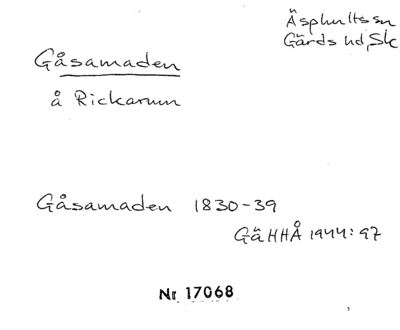 Äsphults sn
Gärds hd, Sk
Gåsamaden
å Rickarum
Gåsamaden 1830-39
GäHHÅ 1944: 97
Nr 17068